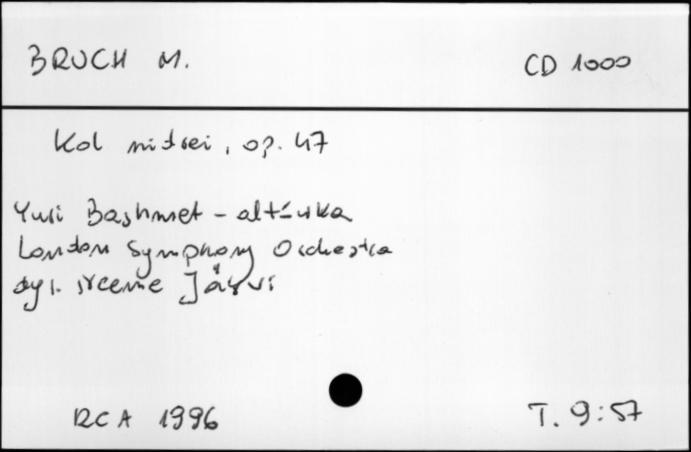 BRUCH M. CD 1000
Kol nidrei, op. 47
Yuri Bashmet - altówka
London Symphony Orchestra
dyr. Neeme Järvi
RCA 1996 T. 9:57